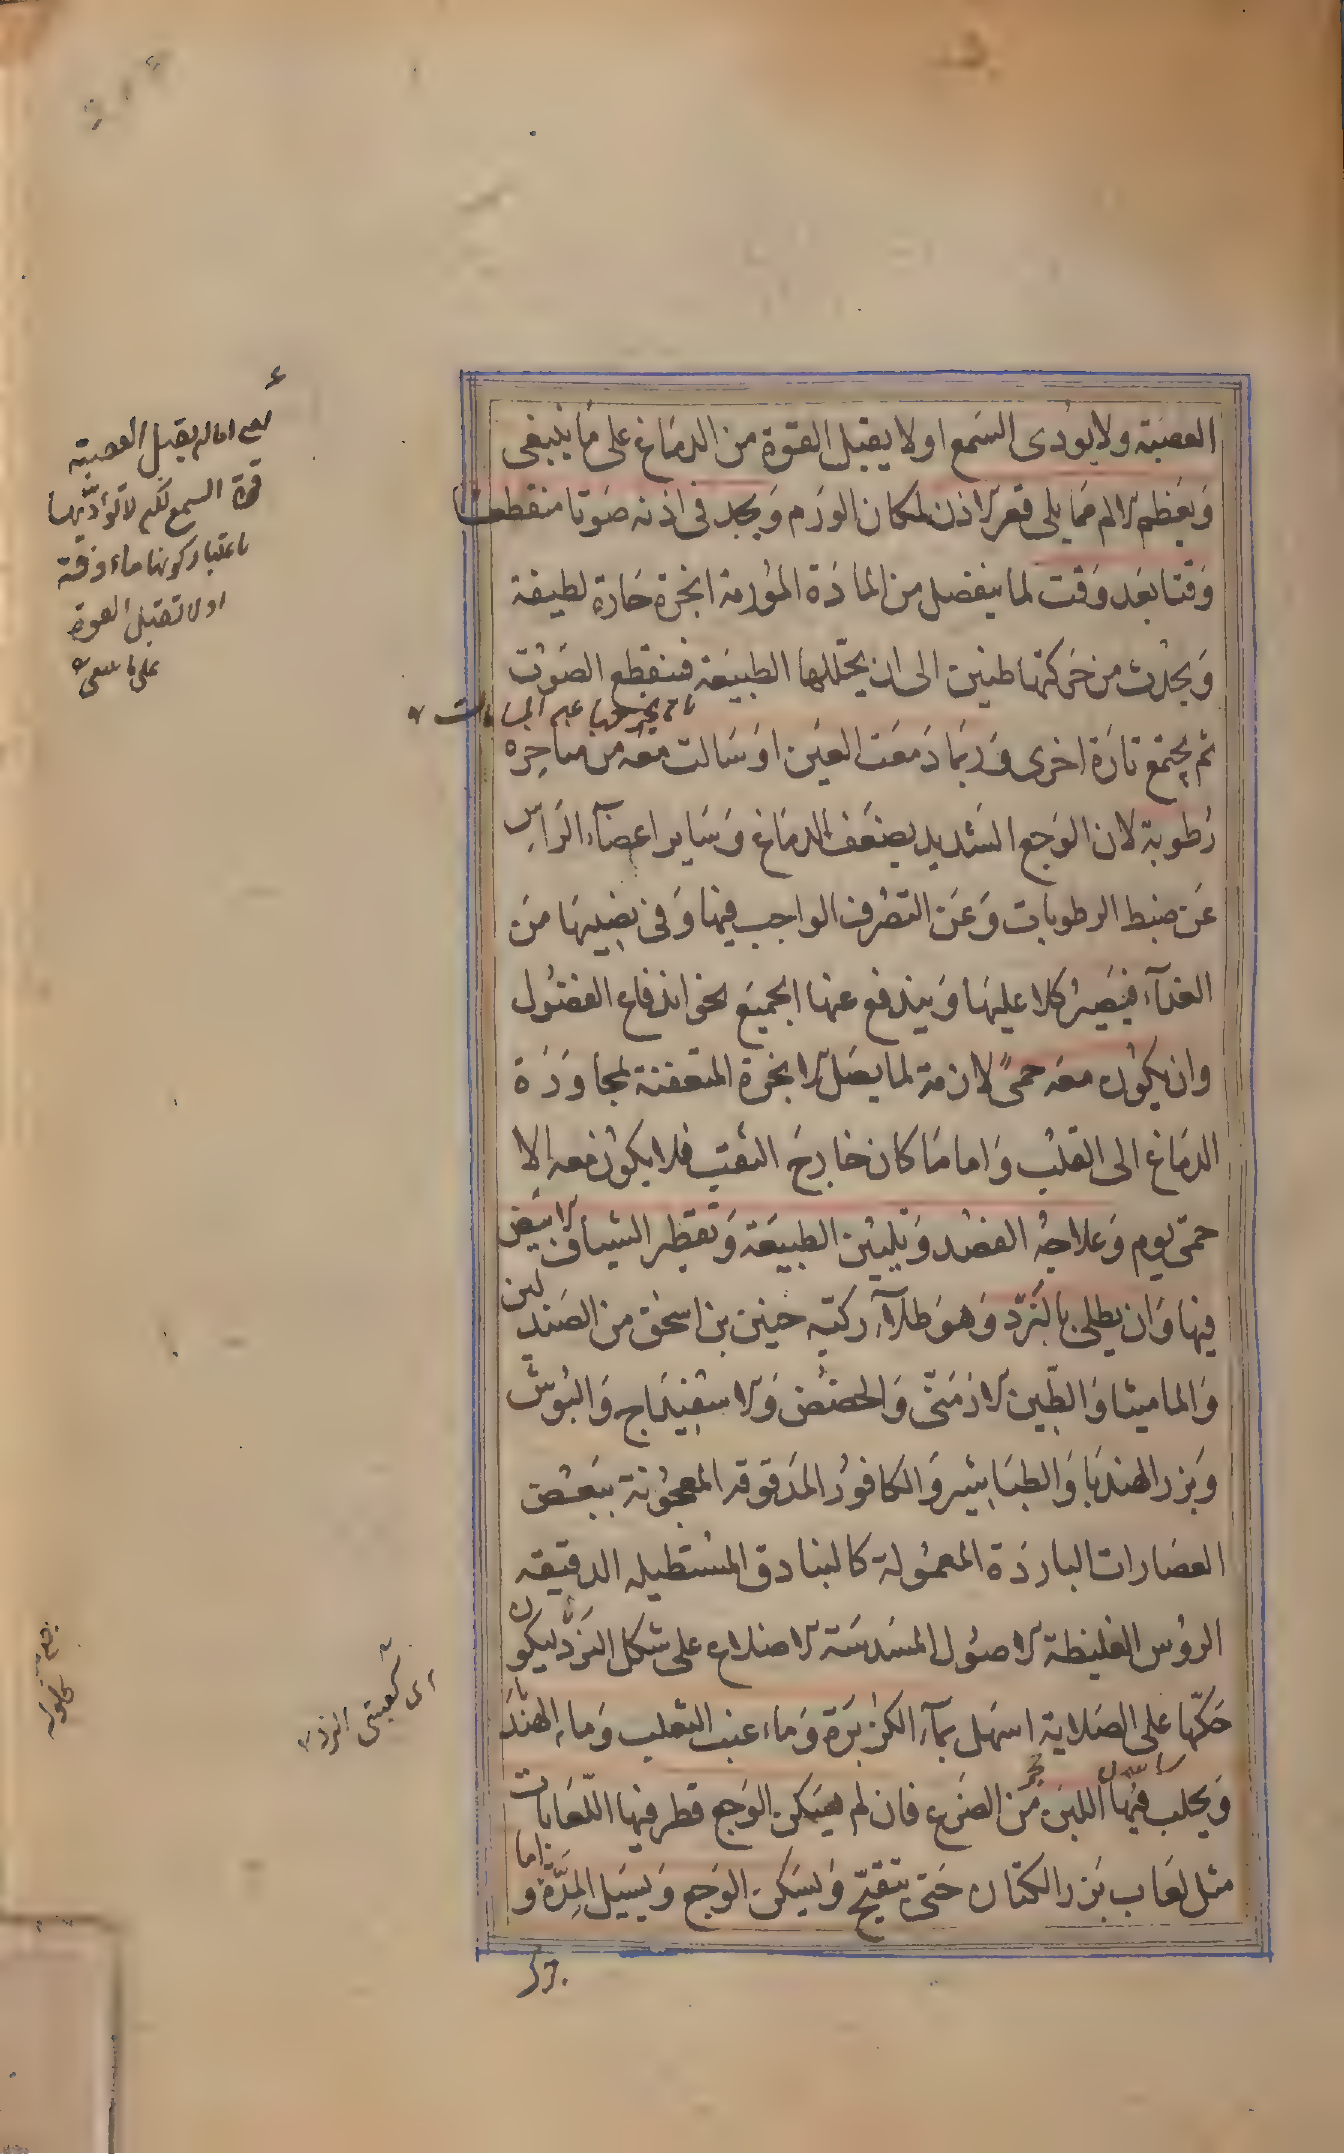 العصبة ولا يؤدى السمع او لا يقبل القوة من الدماغ على ما ينبغى
وبعظم الالم مما يلى قعر الاذن لمكان الورم ويجد فى اذنه صوتا منقطعا
وقتا بعد وقت لما ينفصل من المادة المورمة ابخرة حارة لطيفة
ويحدث من حركتها طنين الى ان يحللها الطبيعة فينقطع الصوت
ثم يجتمع تارة اخرى وربما دمعت العين او سالت معه من مناخره
رطوبة لان الوجع الشديد يضعف الدماغ وساير اعضآء الراس
عن ضبط الرطوبات وعن التصرف الواجب فيها وفى نصيبها من
الغذآء فيصير كلا عليها ويندفع عنها الجميع نحو اندفاع الفضول
وان يكون معه حمى لازمة لما يصل الابخرة المتعفنة لمجاورة
الدماغ الى القلب واما ما كان خارج الثقب فلا يكون معه الا
حمى يوم وعلاجه الفصد وتليين الطبيعة وتقطر الشياف الابيض
فيها وان يطلى بالنرد وهو طلآء ركبه حنين بن اسحق من الصندلين
والماميثا والطين الارمنى والحضض والاسفيداج والبوش
وبزر الهندبا والطباشير والكافور المدقوقه المعجونة ببعض
العصارات الباردة المعمولة كالبنادق المستطيله الدقيقه
الروس الغليظة الاصول المسدسة الاضلاع على شكل النرد ليكون
حكها على الصلاية اسهل بمآء الكزبرة وماء عنب الثعلب وماء الهندبا
ويحلب فيها اللبن من الضرع فان لم يسكن الوجع قطر فيها اللعابات
مثل لعاب بزر الكتان حتى يتقيح ويسكن الوجع ويسيل المدة واما
يقبل العصبة
قوة السمع لكم لا تؤديها
باعتبار كونها ماوفة
او لا تقبل القوة
على ما ينبغى
اى كعبتى النرد